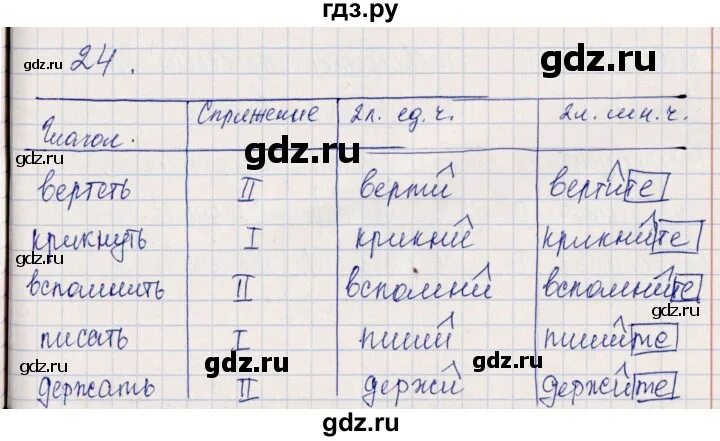 гдз.ру
gdz.ru 24. gdz.ru
Глагол. Спряжение 2л. ед. ч. 2л. мн. ч.
gdz.ru gdz.ru gdz.ru
вертеть II верти вертите
gdz.ru gdz.ru
крикнуть I крикни крикните
gdz.ru
вспомнить II вспомни вспомните
gdz.ru
писать I пиши пишите
gdz.ru gdz.ru gdz.ru
держать II держи держите
gdz.ru